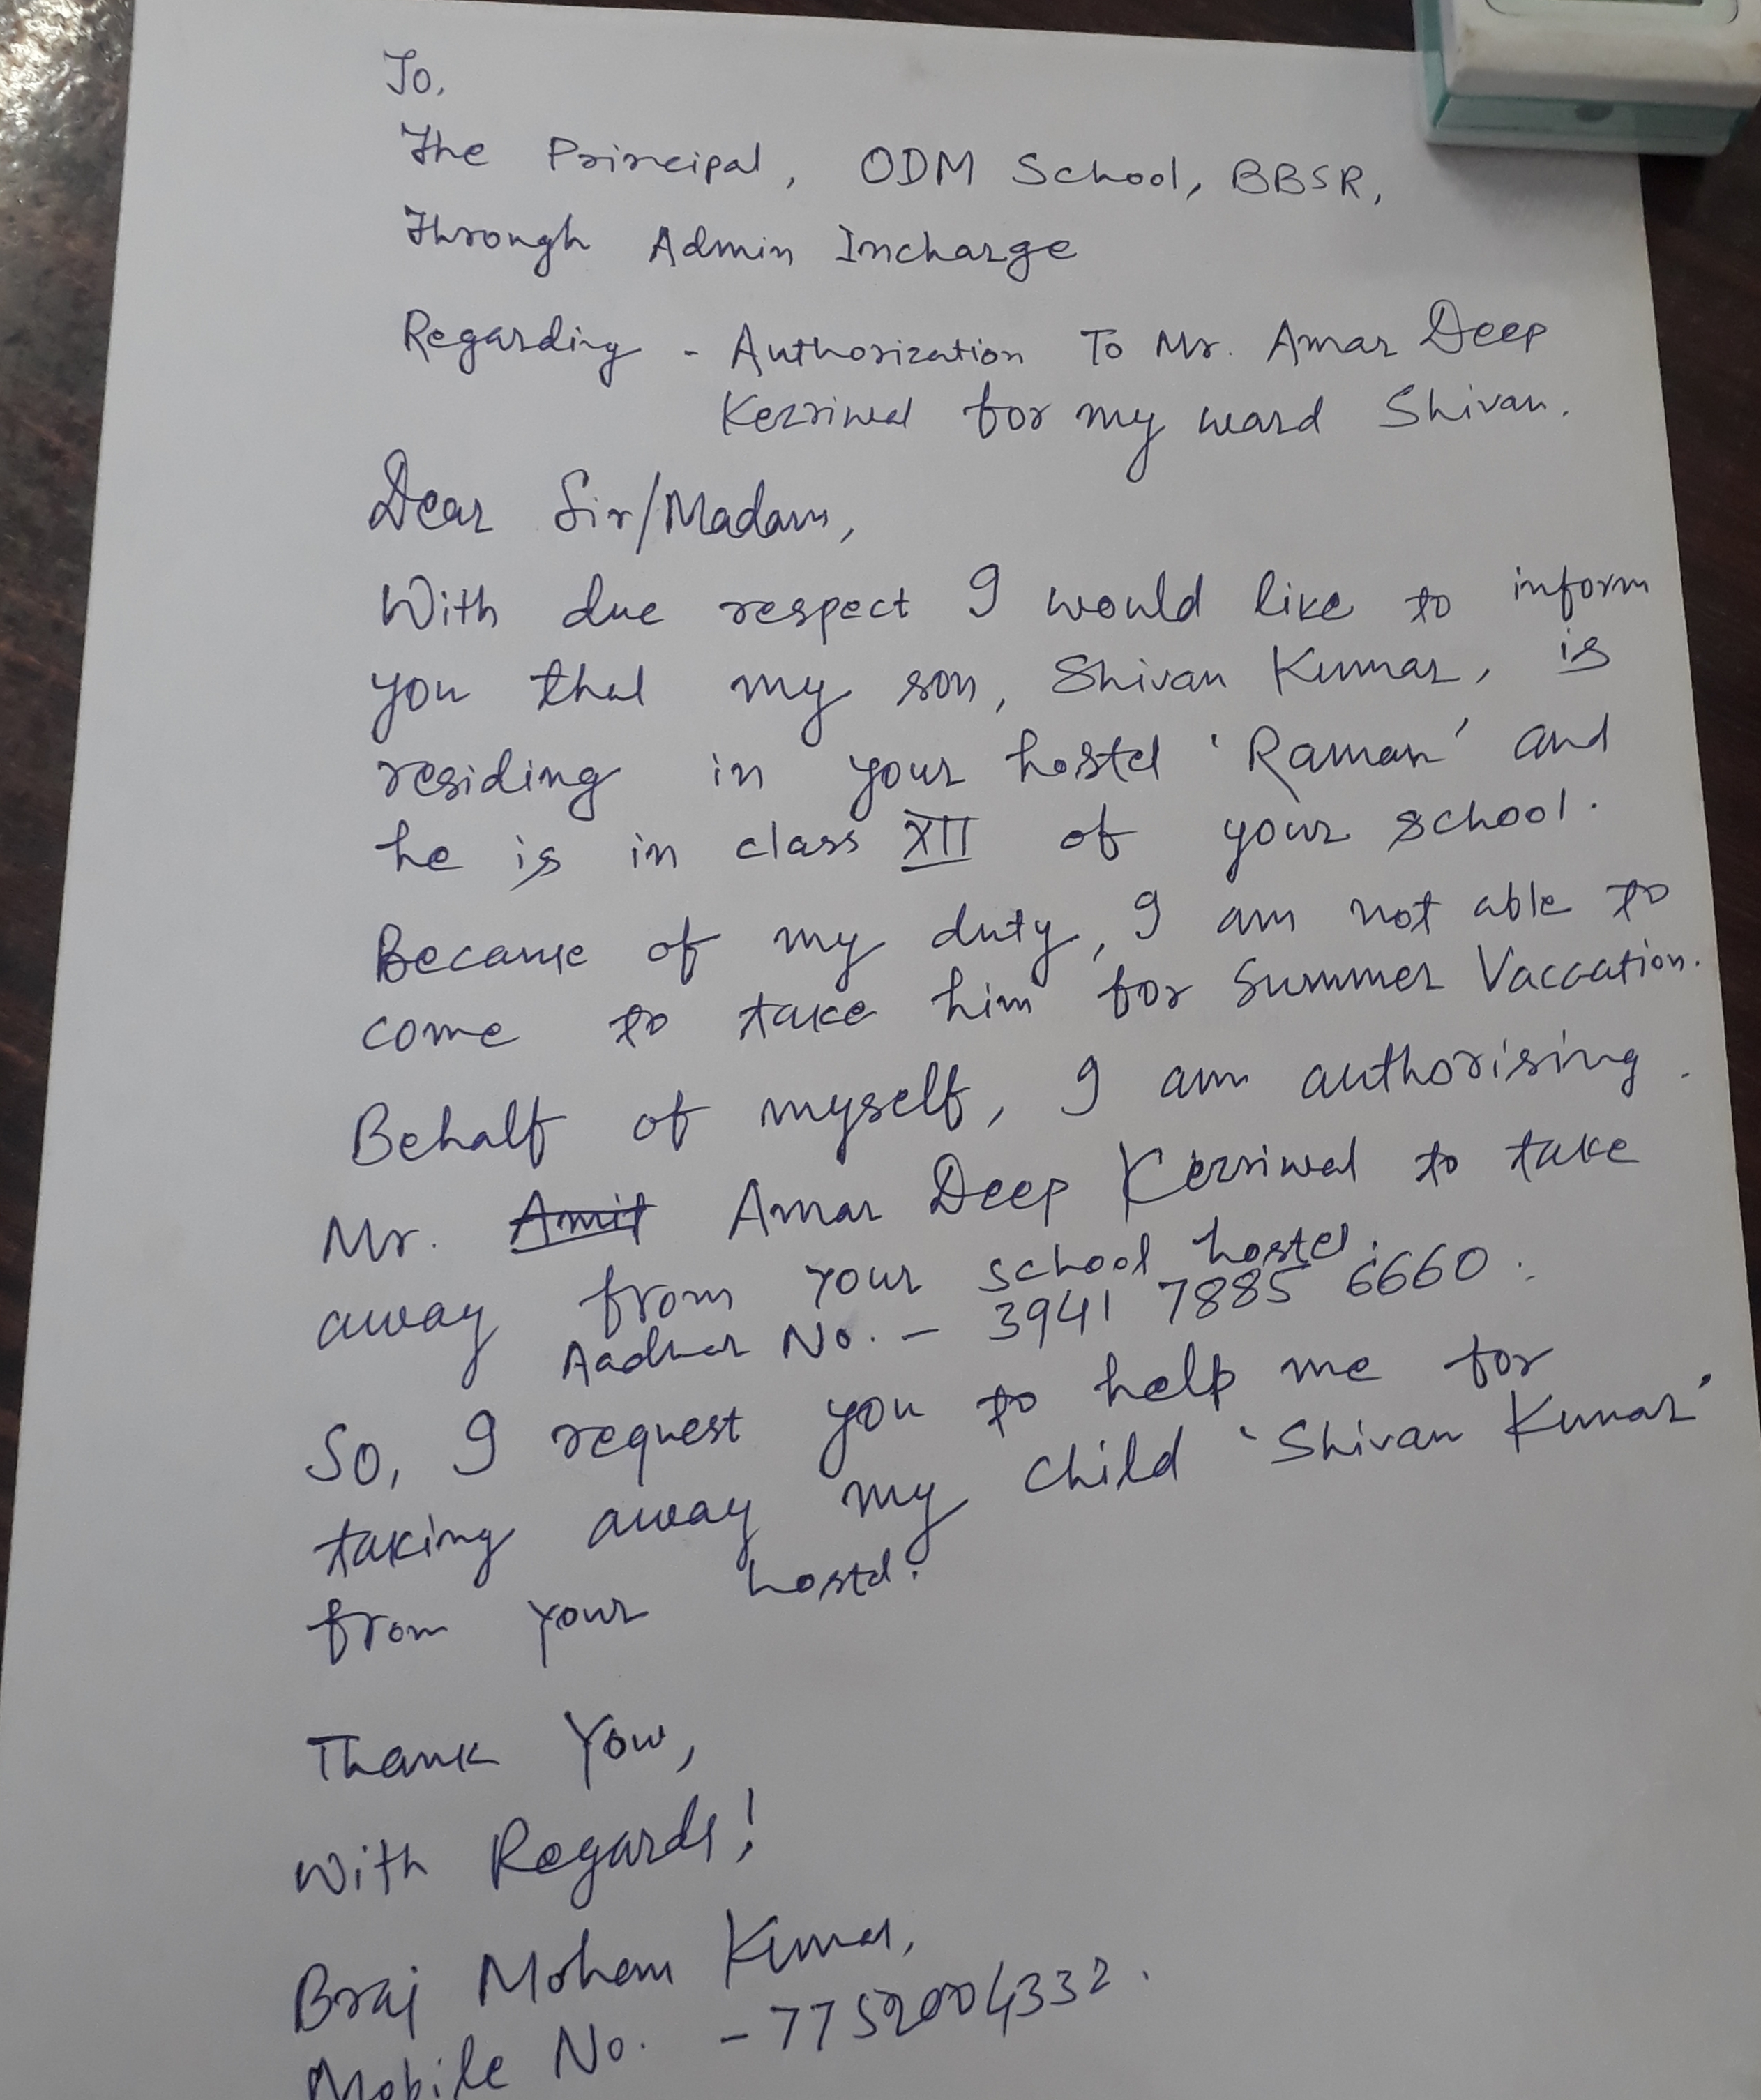 To,
The Principal, ODM School, BBSR,
Through Admin Incharge
Regarding - Authorization To Mr. Amar Deep
Kezriwal for my ward Shivan.
Dear Sir/Madam,
With due respect I would like to inform
you that my son, Shivan Kumar, is
residing in your hostel 'Raman' and
he is in class XII of your school.
Because of my duty, I am not able to
come to take him for Summer Vaccation.
Behalf of myself, I am authorising
Mr. Amit Amar Deep Kezriwal to take
away from your school hostel.
Aadhar No. - 3941 7885 6660.
So, I request you to help me for
taking away my child 'Shivan Kumar'
from your hostel.
Thank You,
With Regards!
Braj Mohan Kumar,
Mobile No. - 7752004332.